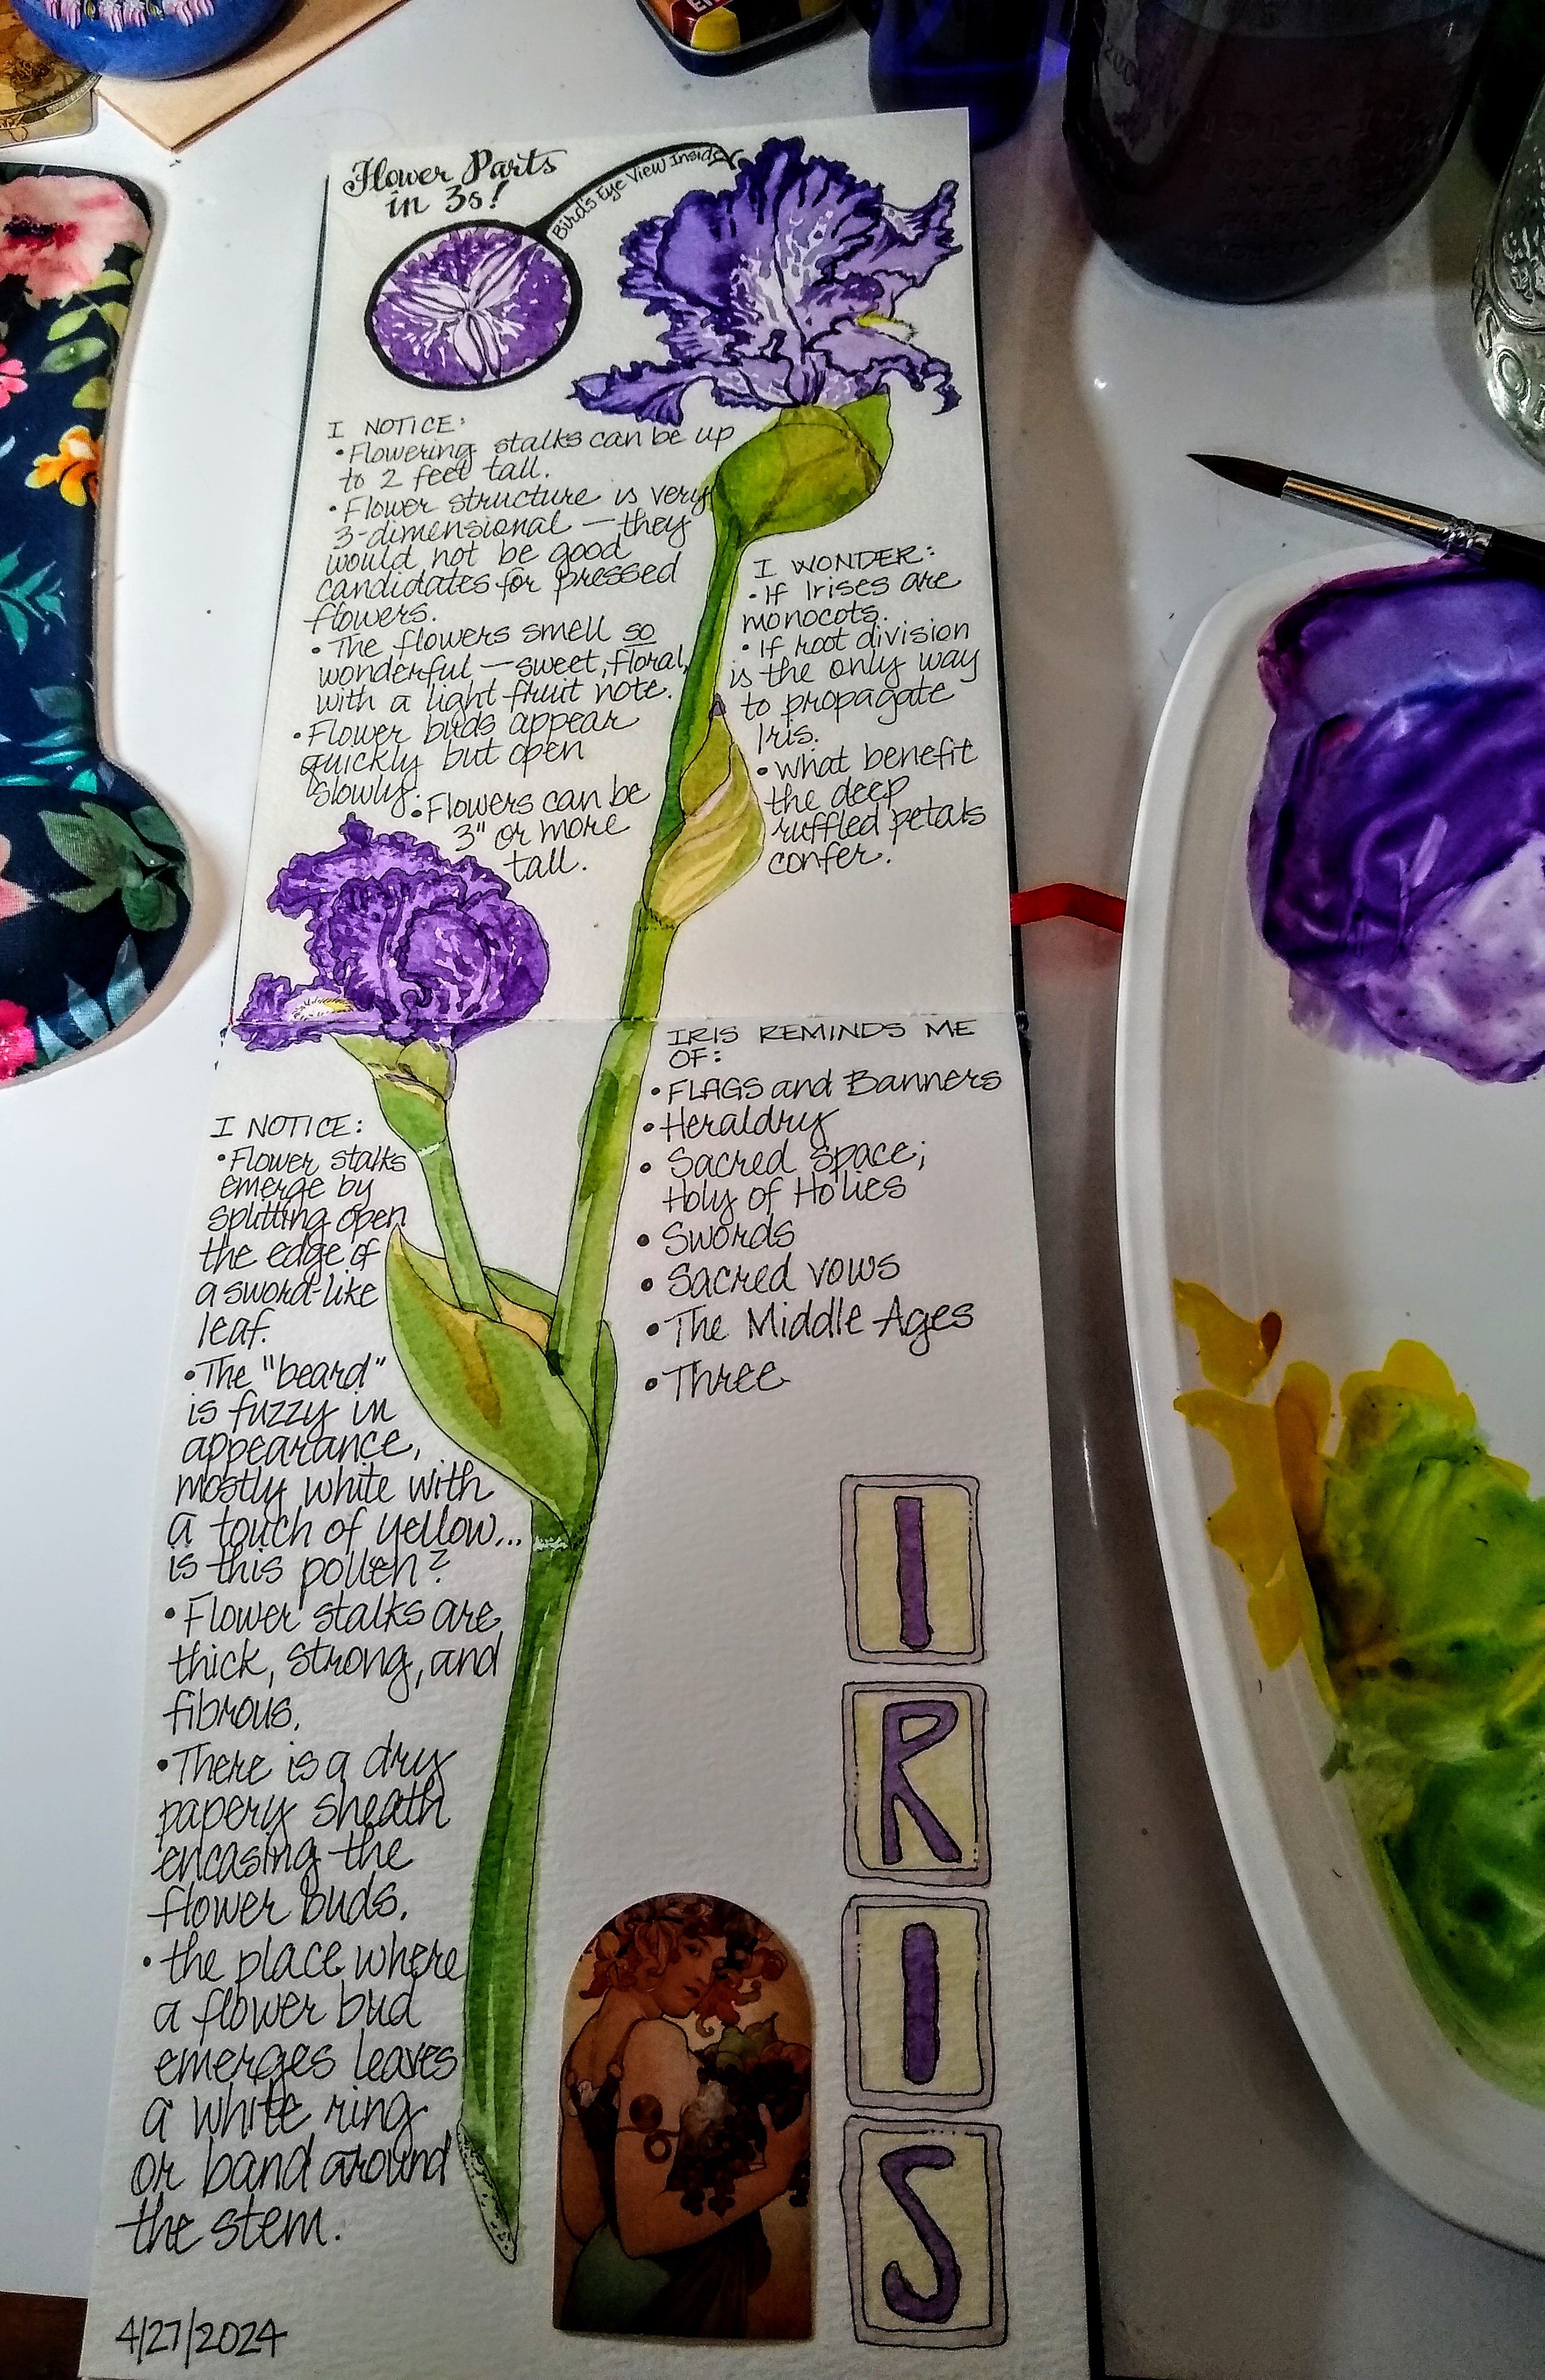 Flower Parts
in 3s!
Bird's Eye View Inside
I NOTICE:
• Flowering stalks can be up
to 2 feet tall.
• Flower structure is very
3-dimensional — they
would not be good
candidates for pressed
flowers.
• The flowers smell so
wonderful — sweet, floral,
with a light fruit note.
• Flower buds appear
quickly but open
slowly.
• Flowers can be
3" or more
tall.
I WONDER:
• If Irises are
monocots.
• If root division
is the only way
to propagate
Iris.
• What benefit
the deep
ruffled petals
confer.
I NOTICE:
• Flower stalks
emerge by
splitting open
the edge of
a sword-like
leaf.
• The "beard"
is fuzzy in
appearance,
mostly white with
a touch of yellow...
is this pollen?
• Flower stalks are
thick, strong, and
fibrous.
• There is a dry
papery sheath
encasing the
flower buds.
• the place where
a flower bud
emerges leaves
a white ring
or band around
the stem.
4/27/2024
IRIS REMINDS ME
OF:
• FLAGS and Banners
• Heraldry
• Sacred space;
Holy of Holies
• Swords
• Sacred vows
• The Middle Ages
• Three
I
R
I
S